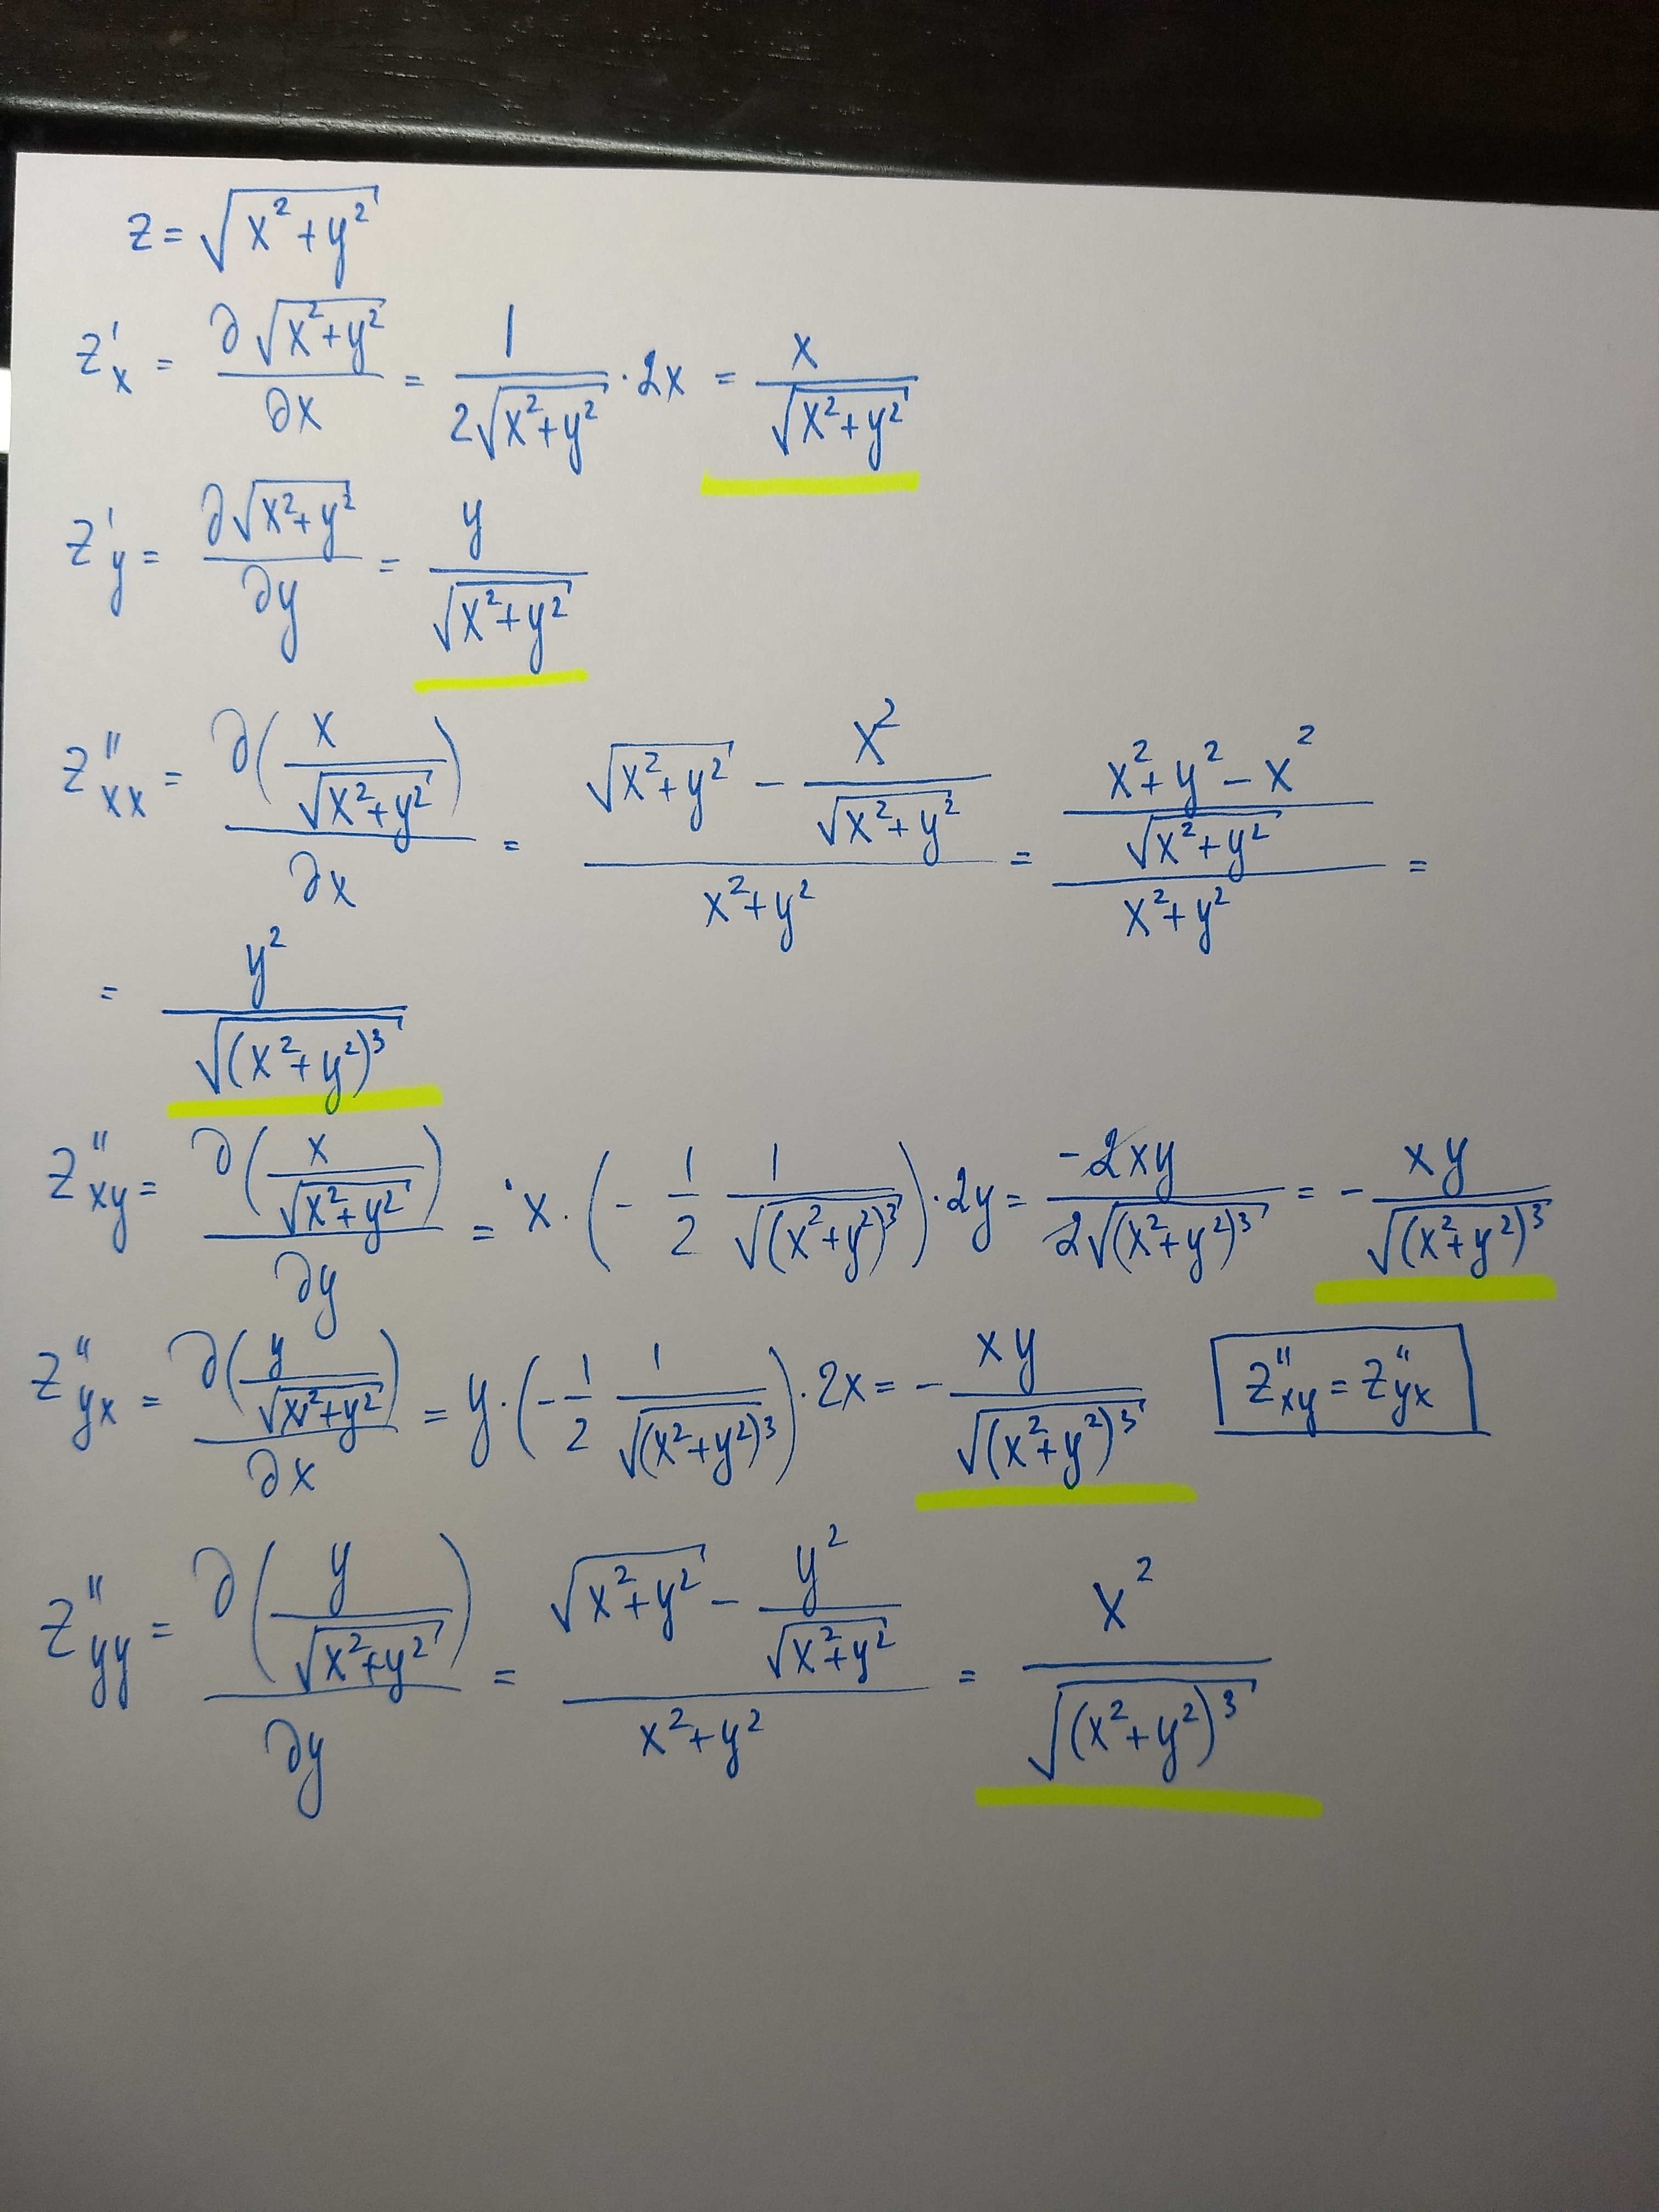 z = √(x² + y²)
z'ₓ = ∂√(x² + y²) / ∂x = 1 / (2√(x² + y²)) · 2x = x / √(x² + y²)
z'_y = ∂√(x² + y²) / ∂y = y / √(x² + y²)
z''_xx = ∂(x / √(x² + y²)) / ∂x = (√(x² + y²) − x² / √(x² + y²)) / (x² + y²) = ((x² + y² − x²) / √(x² + y²)) / (x² + y²) =
= y² / √((x² + y²)³)
z''_xy = ∂(x / √(x² + y²)) / ∂y = x · (− 1/2 1 / √((x² + y²)³)) · 2y = −2xy / (2√((x² + y²)³)) = − xy / √((x² + y²)³)
z''_yx = ∂(y / √(x² + y²)) / ∂x = y · (− 1/2 1 / √((x² + y²)³)) · 2x = − xy / √((x² + y²)³) z''_xy = z''_yx
z''_yy = ∂(y / √(x² + y²)) / ∂y = (√(x² + y²) − y² / √(x² + y²)) / (x² + y²) = x² / √((x² + y²)³)